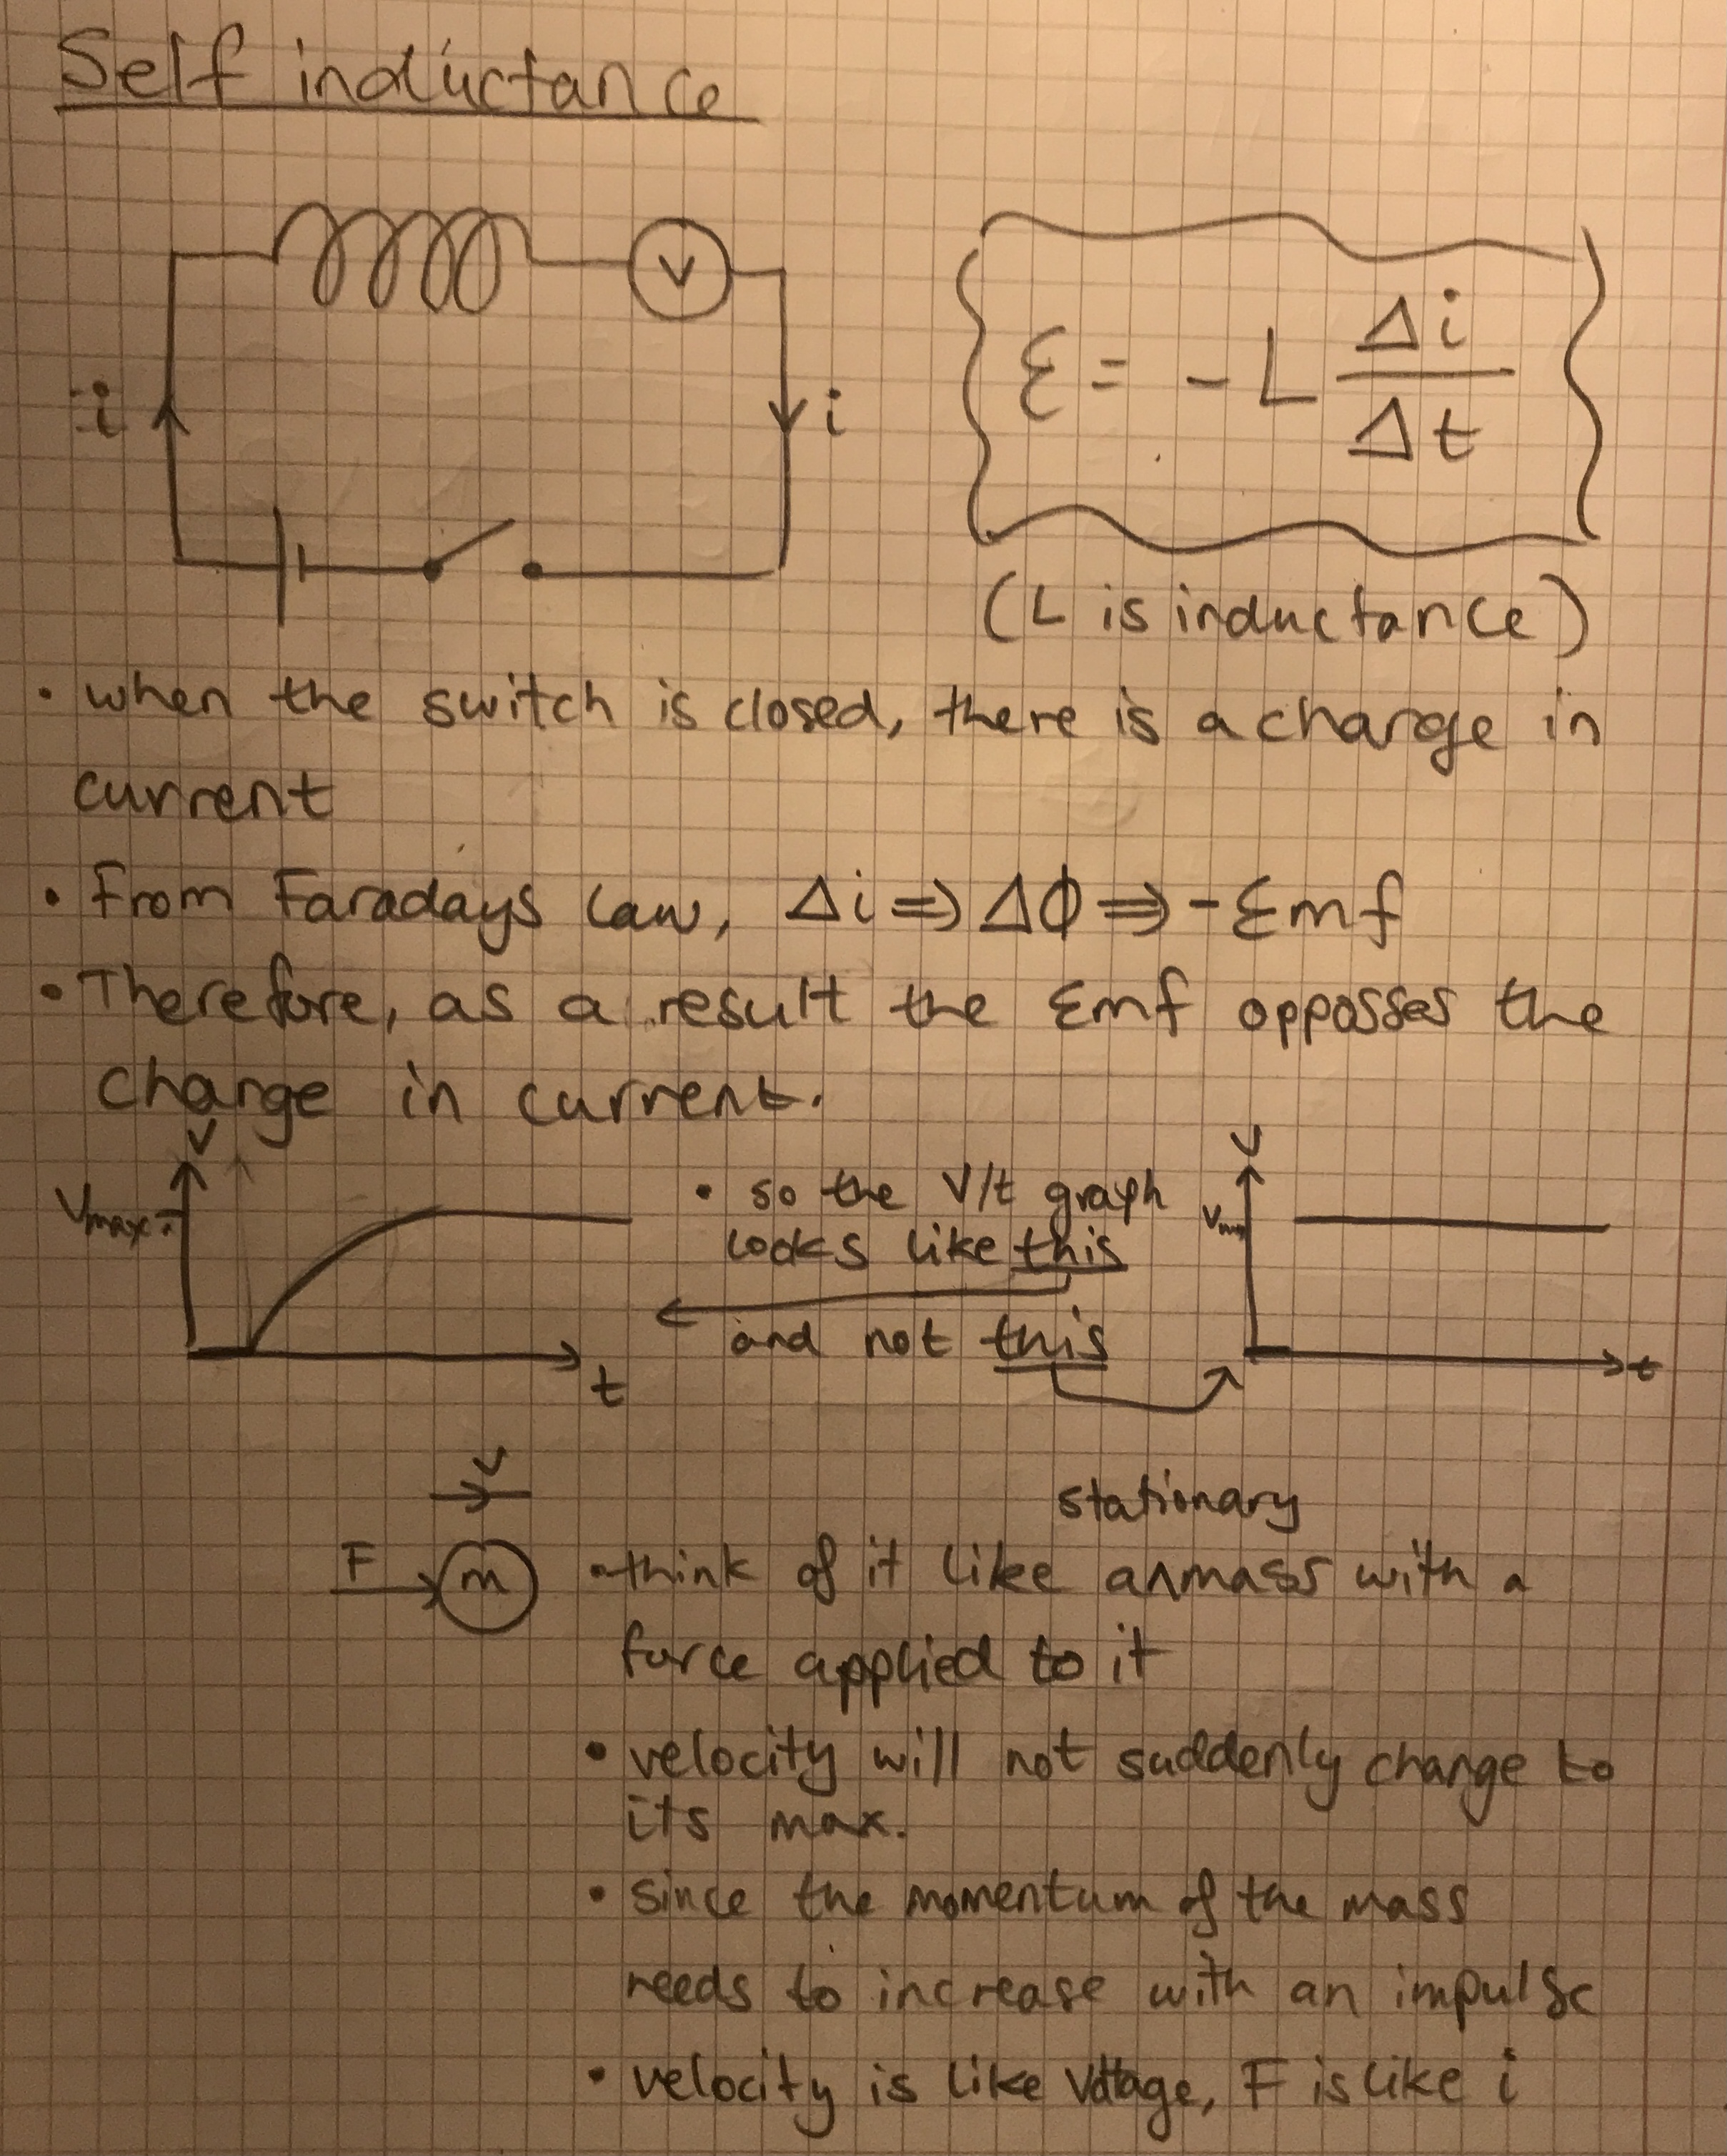 Self inductance
V
i
i
Ɛ = - L Δi / Δt
(L is inductance)
• when the switch is closed, there is a change in
current
• From Faradays Law, Δi ⇒ Δϕ ⇒ - Ɛmf
• Therefore, as a result the Ɛmf opposses the
change in current.
V
Vmax
t
• so the V/t graph
looks like this
and not this
V
t
V
F
m
stationary
• think of it like a^mass with a
force applied to it
• velocity will not suddenly change to
its max.
• since the momentum of the mass
needs to increase with an impulse
• velocity is like Voltage, F is like i